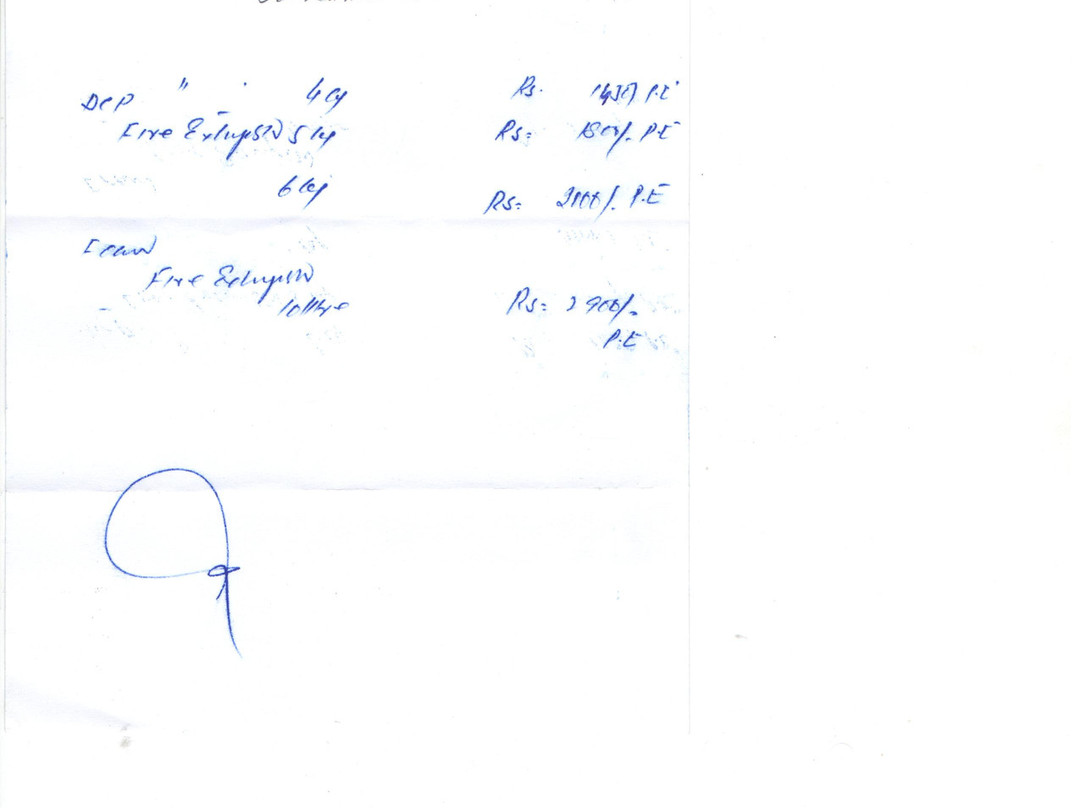 DCP " . 4 kg Rs. 1450/ P.E
Fire Extingusher 5 kg Rs= 1800/- P.E
6 kg Rs= 2100/- P.E
Foam
Fire Extingusher
10 litre Rs= 2900/-
P.E